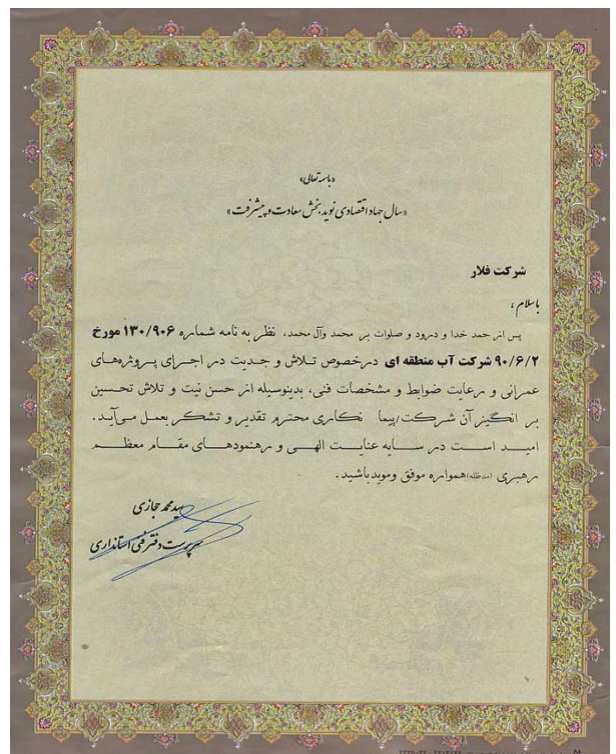 «باسمه تعالی»
«سال جهاد اقتصادی نوید بخش سعادت و پیشرفت»
شرکت فلار
باسلام ،
پس از حمد خدا و درود و صلوات بر محمد وآل محمد، نظر به نامه شماره ۱۳۰/۹۰۶ مورخ
۹۰/۶/۲ شرکت آب منطقه ای درخصوص تلاش و جدیت در اجرای پروژه‌های
عمرانی و رعایت ضوابط و مشخصات فنی، بدینوسیله از حسن نیت و تلاش تحسین
بر انگیز آن شرکت/پیما نکاری محترم تقدیر و تشکر بعمل می‌آید.
امید است در سایه عنایت الهی و رهنمودهای مقام معظم
رهبری (مدظله) همواره موفق ومویدباشید.
سید محمد حجازی
سرپرست دفتر فنی استانداری